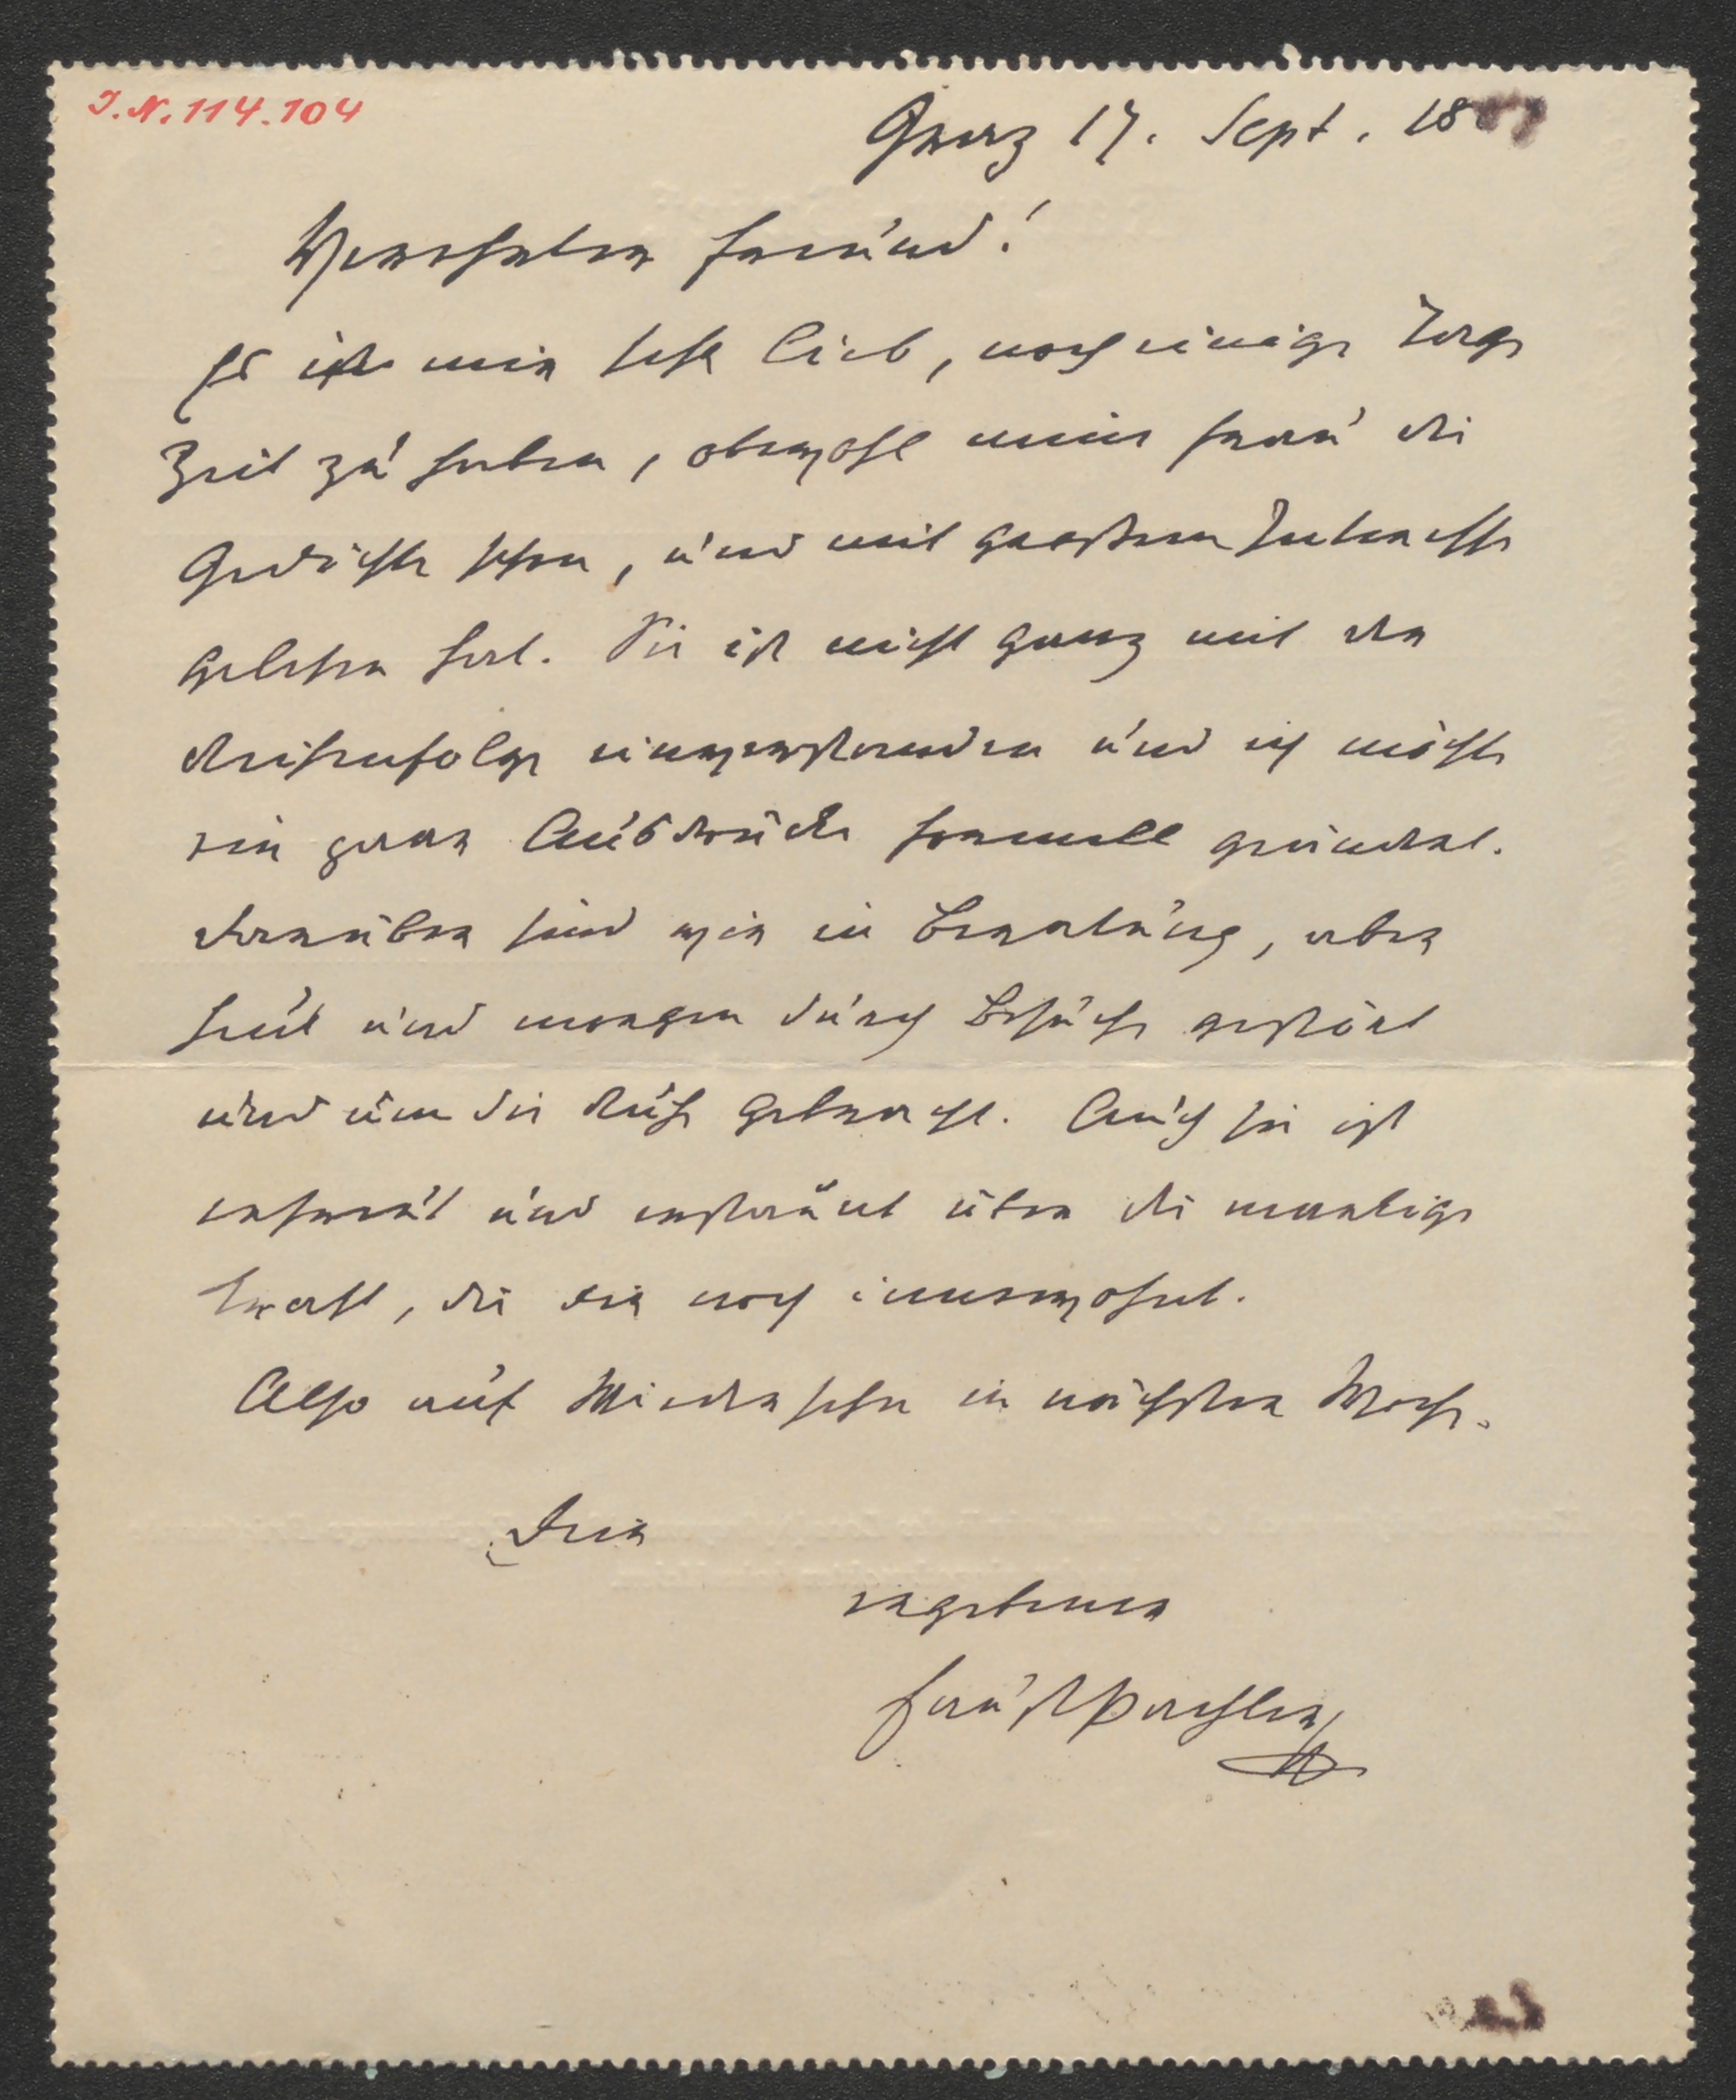 I.N. 114.104
Graz 17. Sept. 18
Verehrter Freund!
Es ist mir sehr lieb, noch einige Tage
Zeit zu haben, obwohl meine Frau die
Gedichte schon, und mit großem Interesse
gelesen hat. Sie ist nicht ganz mit der
Reihenfolge einverstanden und ich möchte
ein paar Ausdrücke formell geändert.
Darüber sind wir in Berathung, aber
heut und morgen durch Besuche gestört
und um die Ruhe gebracht. Auch sie ist
erfreut und erstaunt über die markige
Kraft, die Dir noch innewohnt.
Also auf Wiedersehn in nächster Woche.
Dein
ergebener
Faust Pachler